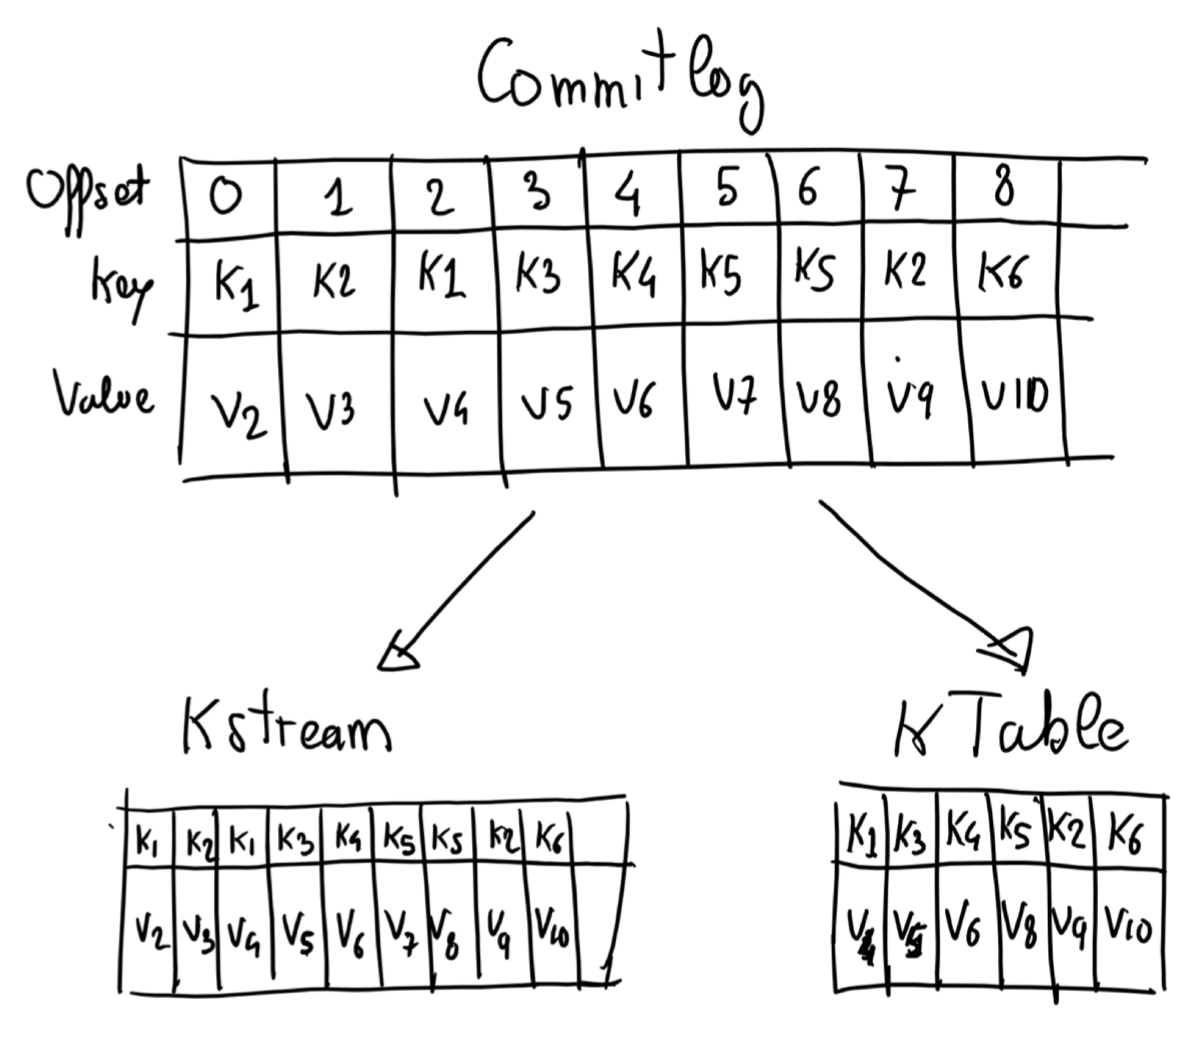 Commitlog
Offset 0 1 2 3 4 5 6 7 8
Key K1 K2 K1 K3 K4 K5 K5 K2 K6
Value V2 V3 V4 V5 V6 V7 V8 V9 V10
Kstream
KTable
K1 K2 K1 K3 K4 K5 K5 K2 K6
V2 V3 V4 V5 V6 V7 V8 V9 V10
K1 K3 K4 K5 K2 K6
V4 V5 V6 V8 V9 V10